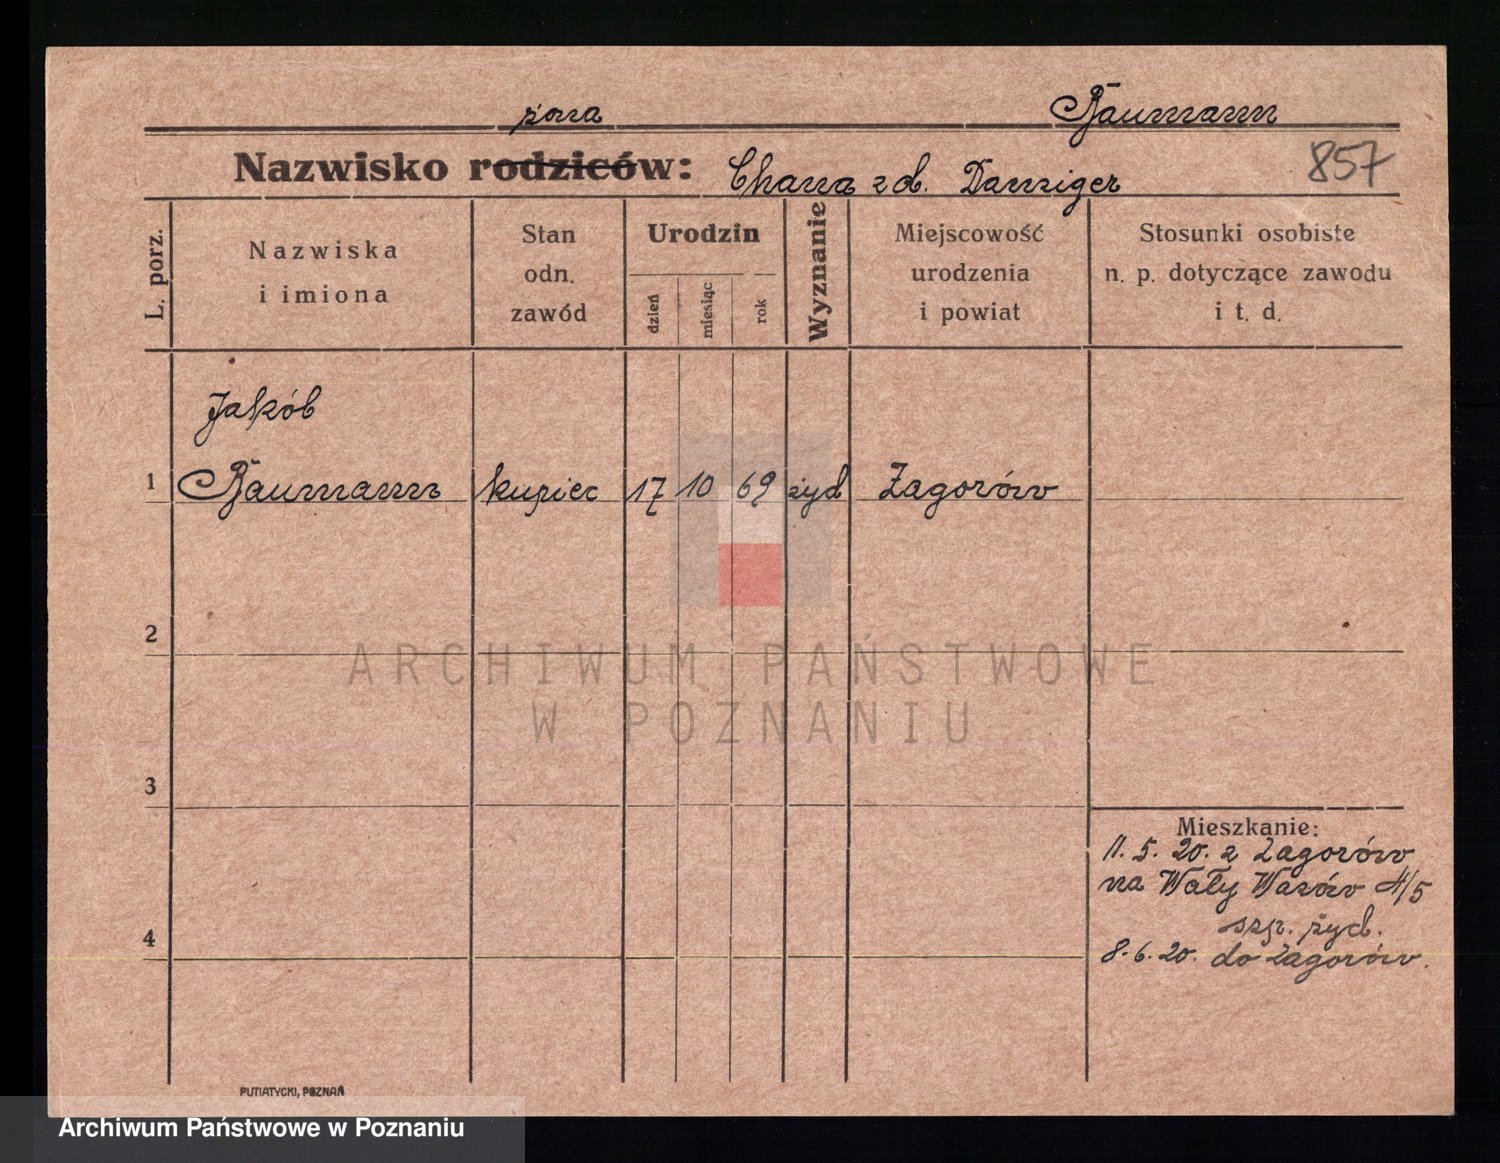 żona Baumann
Nazwisko rodziców: Chana z d. Danziger 857
L. porz.
Nazwiska
i imiona
Stan
odn.
zawód
Urodzin
dzień
miesiąc
rok
Wyznanie
Miejscowość
urodzenia
i powiat
Stosunki osobiste
n. p. dotyczące zawodu
i t. d.
Jakób
1 Baumann kupiec 17 10 69 żyd Zagorów
2
ARCHIWUM PAŃSTWOWE
W POZNANIU
3
Mieszkanie:
11. 5. 20. z Zagorów
na Wały Wazów 4/5
szp. żyd.
4
8. 6. 20. do Zagorów.
PUTIATYCKI, POZNAŃ
Archiwum Państwowe w Poznaniu